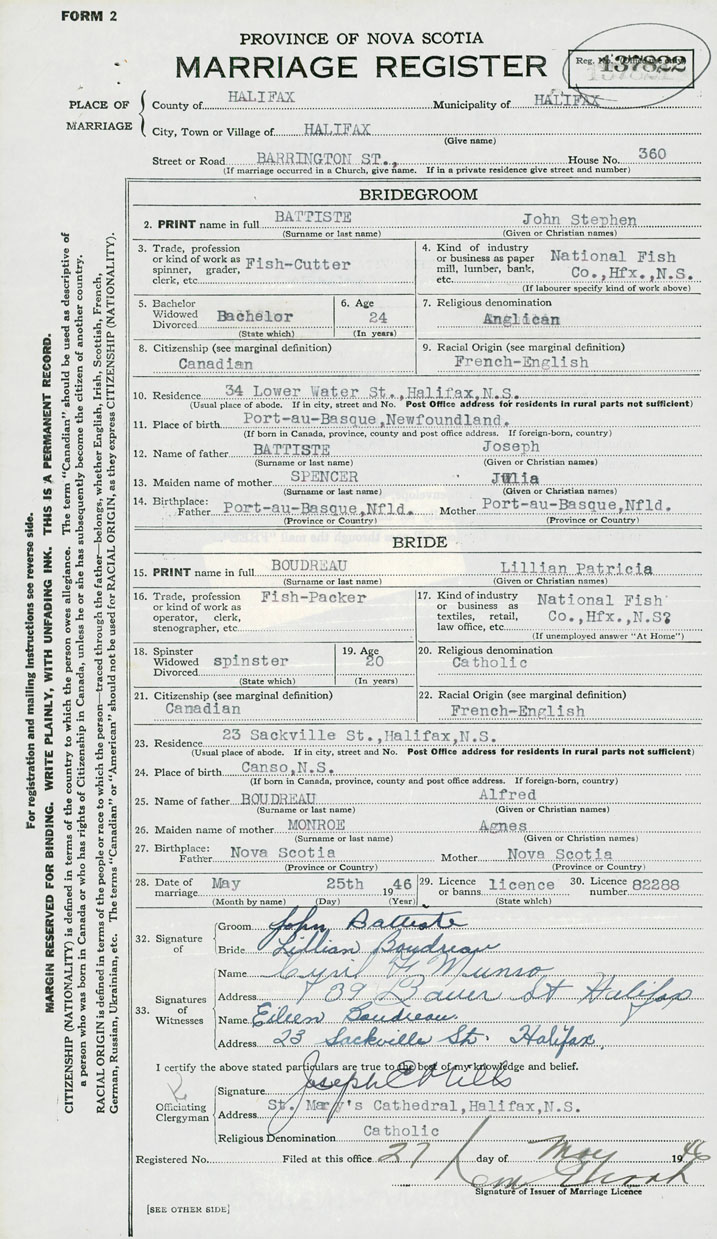 FORM 2
PROVINCE OF NOVA SCOTIA
MARRIAGE REGISTER
Reg. No. 137822
PLACE OF MARRIAGE
County of HALIFAX Municipality of HALIFAX
City, Town or Village of HALIFAX
(Give name)
Street or Road BARRINGTON ST., House No. 360
(If marriage occurred in a Church, give name. If in a private residence give street and number)
BRIDEGROOM
2. PRINT name in full BATTISTE John Stephen
(Surname or last name) (Given or Christian names)
3. Trade, profession or kind of work as spinner, grader, clerk, etc. Fish-Cutter
4. Kind of industry or business as paper mill, lumber, bank, etc. National Fish Co.,Hfx.,N.S.
(If labourer specify kind of work above)
5. Bachelor Widowed Divorced Bachelor
(State which)
6. Age 24
(In years)
7. Religious denomination
Anglican
8. Citizenship (see marginal definition)
Canadian
9. Racial Origin (see marginal definition)
French-English
10. Residence 34 Lower Water St.,Halifax,N.S.
(Usual place of abode. If in city, street and No. Post Office address for residents in rural parts not sufficient)
11. Place of birth Port-au-Basque,Newfoundland.
(If born in Canada, province, county and post office address. If foreign-born, country)
12. Name of father BATTISTE Joseph
(Surname or last name) (Given or Christian names)
13. Maiden name of mother SPENCER Julia
(Surname or last name) (Given or Christian names)
14. Birthplace: Father Port-au-Basque,Nfld. Mother Port-au-Basque,Nfld.
(Province or Country) (Province or Country)
BRIDE
15. PRINT name in full BOUDREAU Lillian Patricia
(Surname or last name) (Given or Christian names)
16. Trade, profession or kind of work as operator, clerk, stenographer, etc. Fish-Packer
17. Kind of industry or business as textiles, retail, law office, etc. National Fish Co.,Hfx.,N.S?
(If unemployed answer "At Home")
18. Spinster Widowed Divorced spinster
(State which)
19. Age 20
(In years)
20. Religious denomination
Catholic
21. Citizenship (see marginal definition)
Canadian
22. Racial Origin (see marginal definition)
French-English
23. Residence 23 Sackville St.,Halifax,N.S.
(Usual place of abode. If in city, street and No. Post Office address for residents in rural parts not sufficient)
24. Place of birth Canso,N.S.
(If born in Canada, province, county and post office address. If foreign-born, country)
25. Name of father BOUDREAU Alfred
(Surname or last name) (Given or Christian names)
26. Maiden name of mother MONROE Agnes
(Surname or last name) (Given or Christian names)
27. Birthplace: Father Nova Scotia Mother Nova Scotia
(Province or Country) (Province or Country)
28. Date of marriage May 25th 1946
(Month by name) (Day) (Year)
29. Licence or banns licence
(State which)
30. Licence number 82288
32. Signature of
Groom John Battiste
Bride Lillian Boudreau
33. Signatures of Witnesses
Name Cyril Munro
Address 39 Bauer St Halifax
Name Eileen Boudreau
Address 23 Sackville St. Halifax
I certify the above stated particulars are true to the best of my knowledge and belief.
Officiating Clergyman
Signature Joseph Mills
Address St. Mary's Cathedral,Halifax,N.S.
Religious Denomination Catholic
Registered No. Filed at this office 27 day of May 1946
Signature of Issuer of Marriage Licence
[SEE OTHER SIDE]
For registration and mailing instructions see reverse side.
MARGIN RESERVED FOR BINDING. WRITE PLAINLY, WITH UNFADING INK. THIS IS A PERMANENT RECORD.
CITIZENSHIP (NATIONALITY) is defined in terms of the country to which the person owes allegiance. The term "Canadian" should be used as descriptive of
a person who was born in Canada or who has rights of Citizenship in Canada, unless he or she has subsequently become the citizen of another country.
RACIAL ORIGIN is defined in terms of the people or race to which the person—traced through the father—belongs, whether English, Irish, Scottish, French,
German, Russian, Ukrainian, etc. The terms "Canadian" or "American" should not be used for RACIAL ORIGIN, as they express CITIZENSHIP (NATIONALITY).